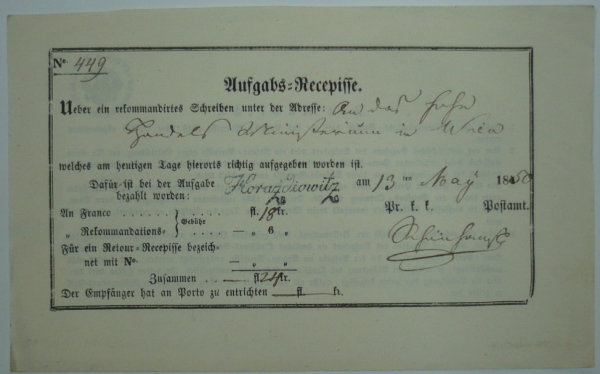 No 449
Aufgabs-Recepisse.
Ueber ein rekommandirtes Schreiben unter der Adresse: An das hohe
Handels Ministerium in Wien
welches am heutigen Tage hierorts richtig aufgegeben worden ist.
Dafür ist bei der Aufgabe Horaždiowitz am 13ten May 1850
bezahlt worden: Pr. k. k. Postamt.
An Franco . . . . . . . . . . fl. 18 kr.
„ Rekommandations- Gebühr . . . . — „ 6 „
Für ein Retour-Recepisse bezeich-
net mit No — „ „
Zusammen . . . — fl. 24 kr.
Der Empfänger hat an Porto zu entrichten — fl. kr.